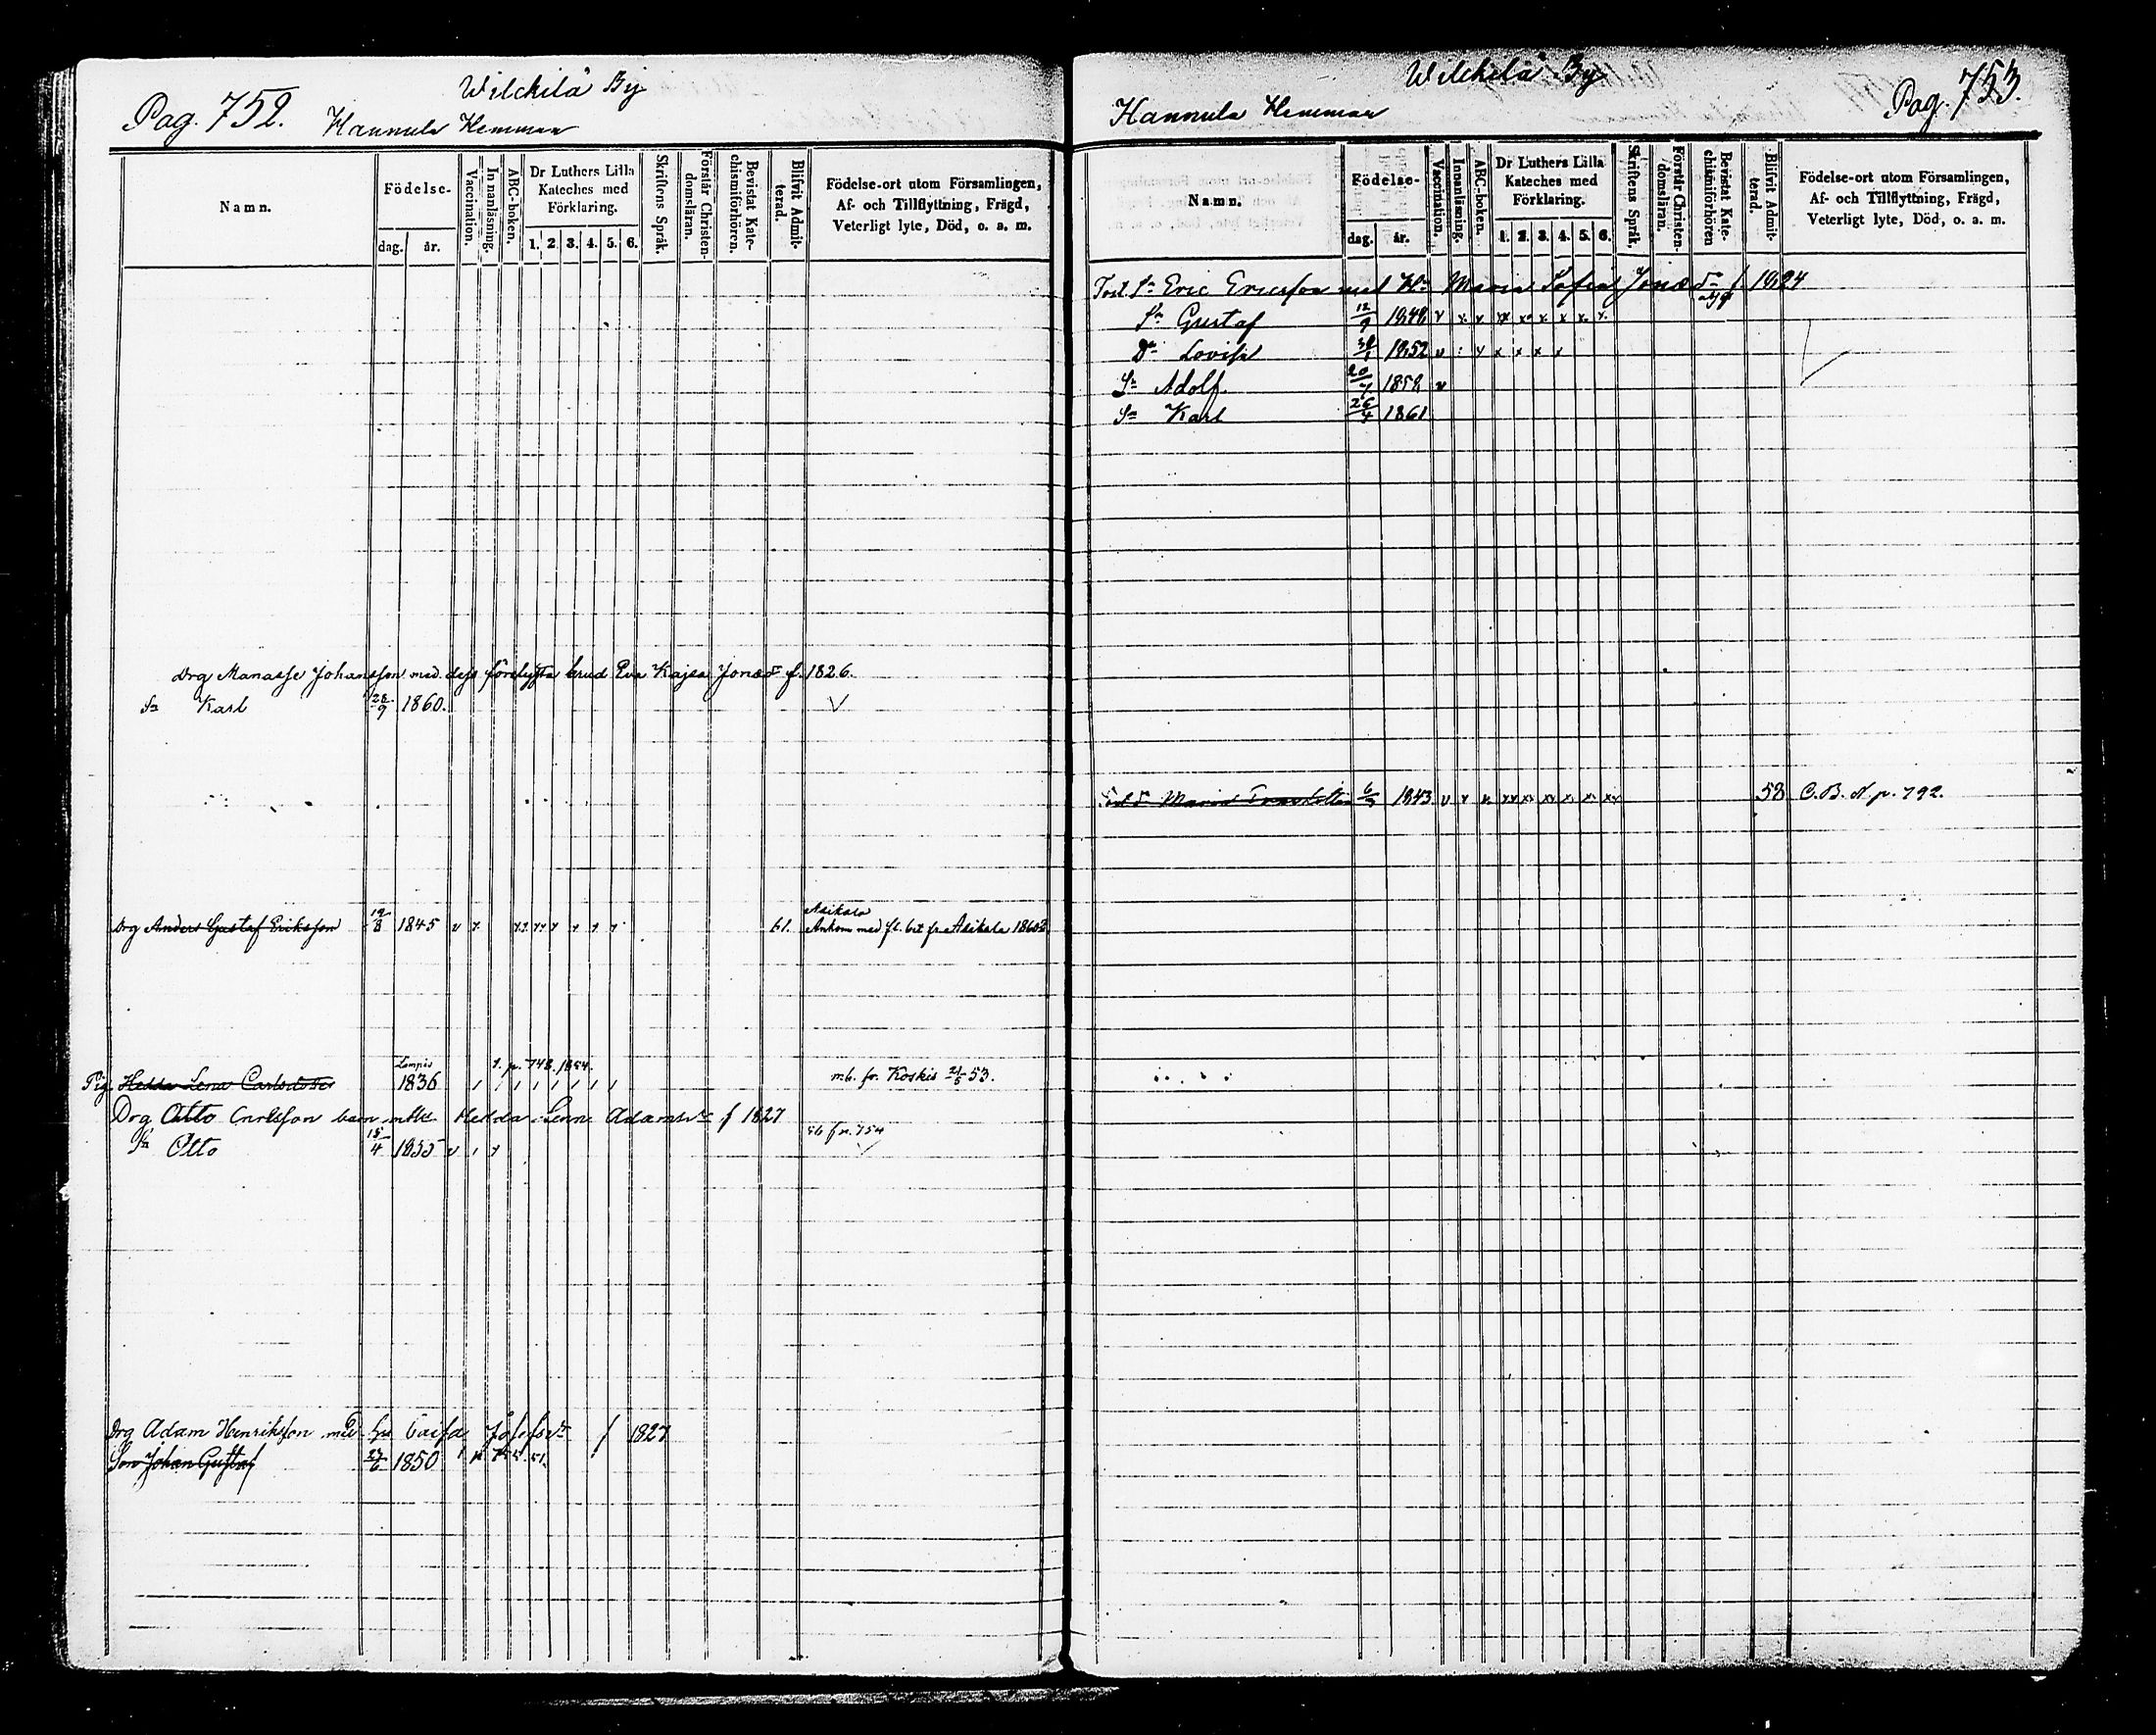 Pag. 752.
Wilckilä By
Hannula Hemman
Namn.
Födelse-
dag.
år.
Vaccination.
Innanläsning.
ABC-boken.
Dr Luthers Lilla
Kateches med
Förklaring.
1. 2. 3. 4. 5. 6.
Skriftens Språk.
Förstår Christen-
domsläran.
Bevistat Kate-
chismiförhören.
Blifvit Admit-
terad.
Födelse-ort utom Församlingen,
Af- och Tillflyttning, Frägd,
Veterligt lyte, Död, o. a. m.
Drg Manasse Johansson med dess förelyfta brud Eva Kajsa Jonæ dr f. 1826.
Sn Karl 28/9 1860. v
Drg Anders Gustaf Eriksson 19/8 1845 v x xx xx x x x x 61.
Asikala
Ankom med fl. bet fr Asikala 1860
Lampis 1. p. 748. 1854.
Pig. Hedda Lena Carlsdotter 1836 m.b. fr. Koskis 21/5 53.
Drg Otto Carlsson barn Hedda Lena Adamsdr f 1827
Sn Otto 15/4 1855 v
56 fr. 754
Drg Adam Henriksson med Josefsdr f 1827
Son Johan Gustaf 27/6 1850
Wilckilä By
Pag. 753.
Hannula Hemman
Namn.
Födelse-
dag.
år.
Vaccination.
Innanläsning.
ABC-boken.
Dr Luthers Lilla
Kateches med
Förklaring.
1. 2. 3. 4. 5. 6.
Skriftens Språk.
Förstår Christen-
domsläran.
Bevistat Kate-
chismiförhören
Blifvit Admit-
terad.
Födelse-ort utom Församlingen,
Af- och Tillflyttning, Frägd,
Veterligt lyte, Död, o. a. m.
Eric Ericsson med Maria Sofia Jonæ dr f. 1824
Sn Gustaf 12/9 1848 v x. v xx x. x. x x. x.
Dr Lovisa 1852 v : v x x x x
Sn Adolf 20/7 1858 v
Sn Karl 26/4 1861
Maria 1843 v x x. xx x. xx x. x. xx 58 C.B. N p. 792.